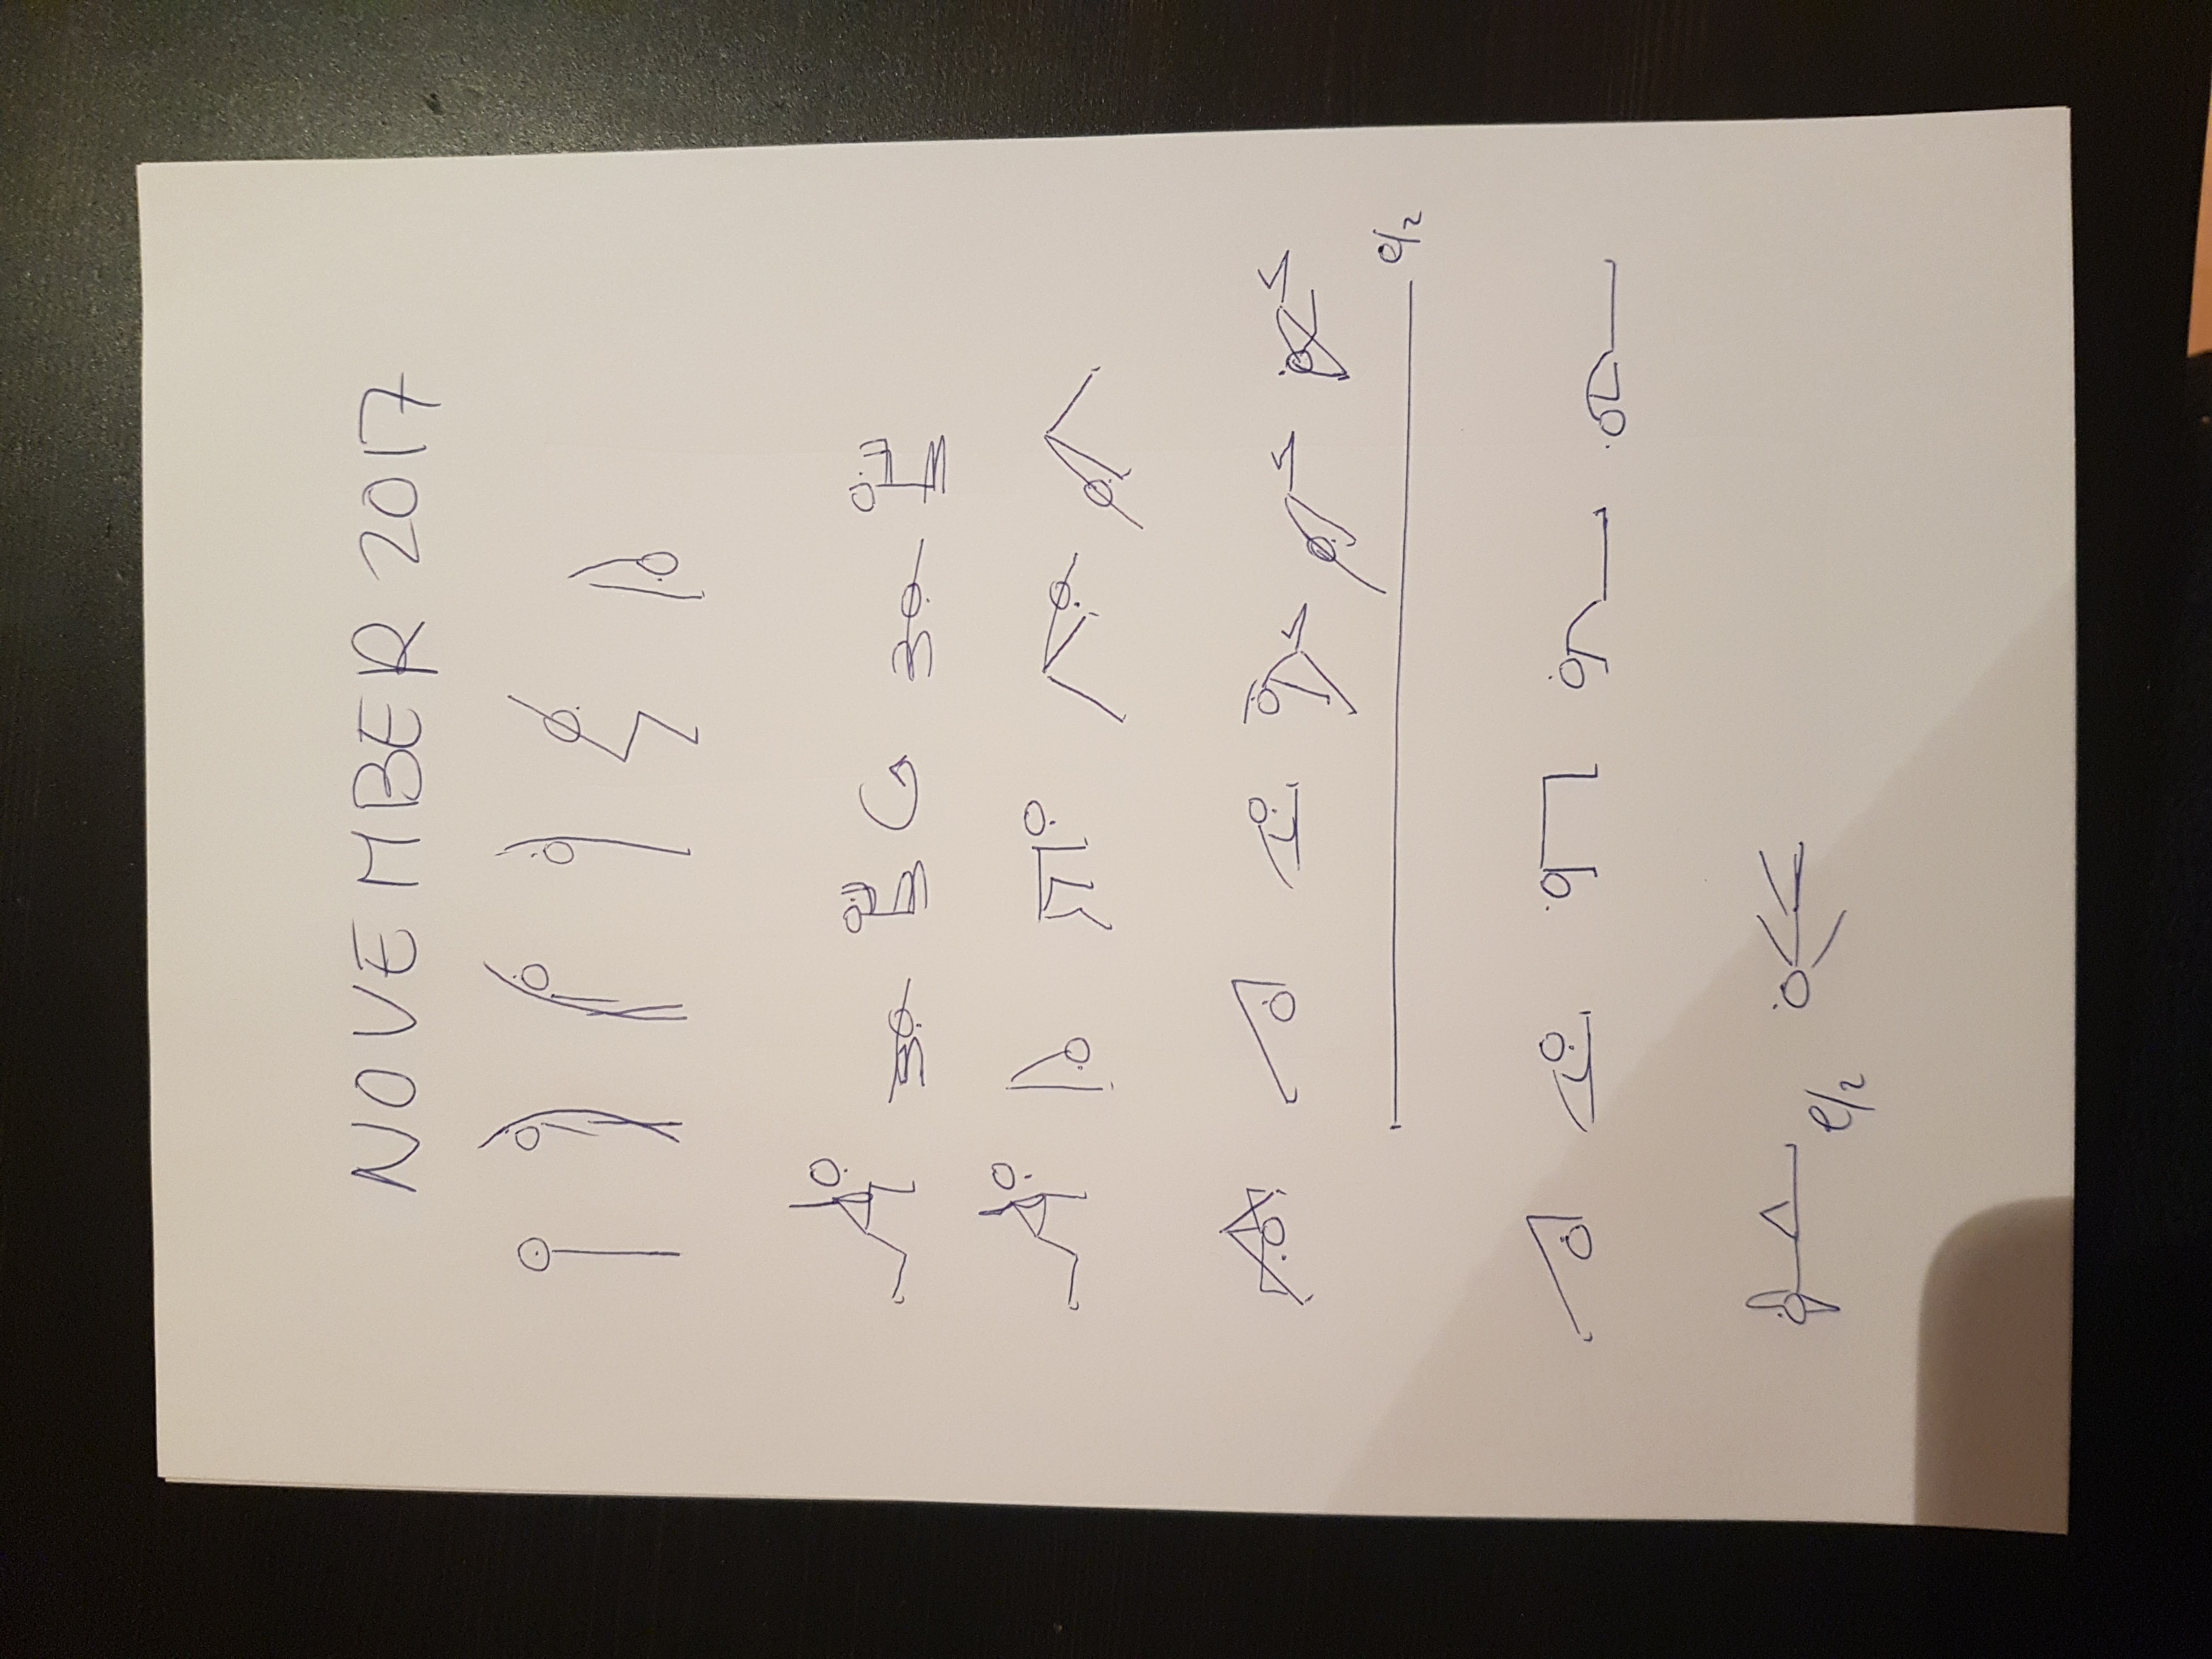 NOVEMBER 2017
e/2
e/2